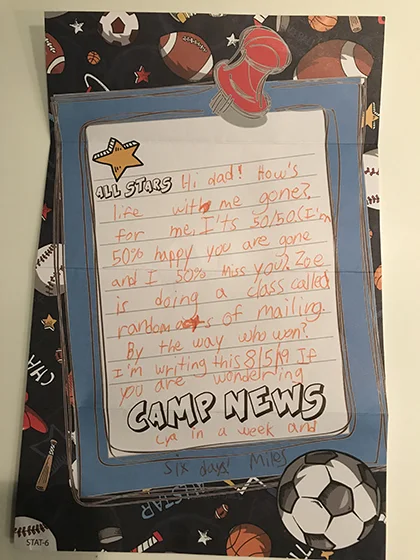 ALL STARS Hi dad! How's
life with me gone?
for me, I'ts 50/50 (I'm
50% happy you are gone
and I 50% miss you? Zoe
is doing a class called
random acts of mailing.
By the way who won?
I'm writing this 8/5/19 If
you are wondering
CAMP NEWS
Cya in a week and
six days! Miles
STAT-6